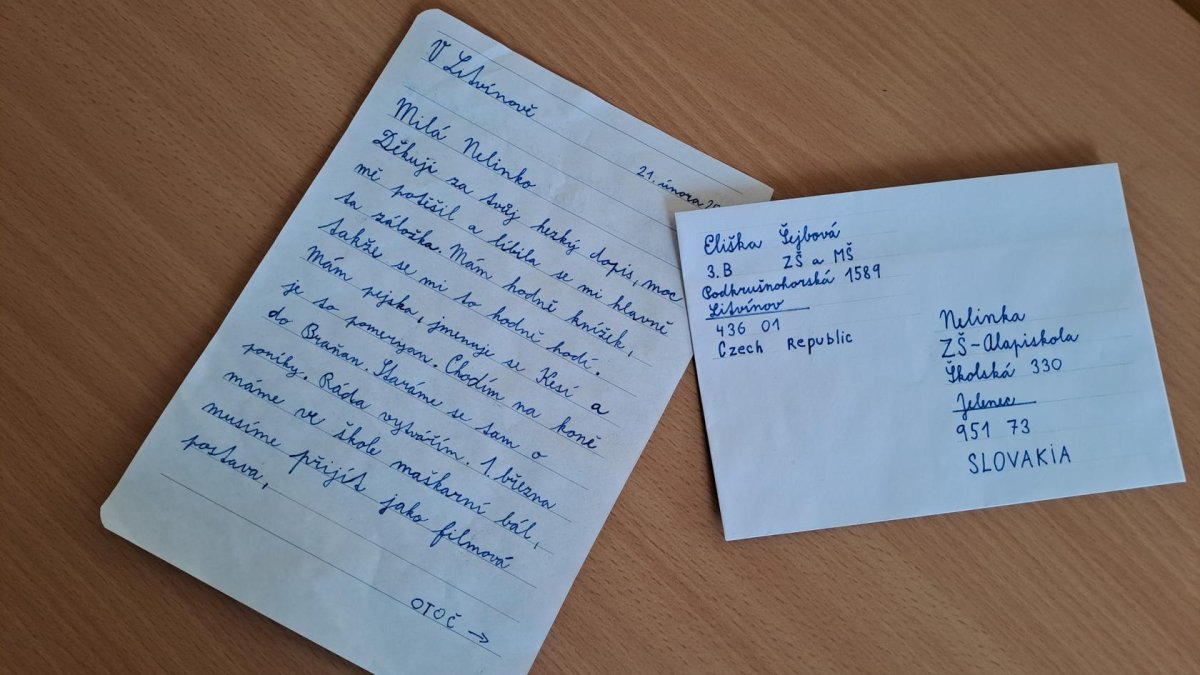 V Litvínově
21. února
Milá Nelinko
Děkuji za tvůj hezký dopis, moc
mě potěšil a líbila se mi hlavně
ta záložka. Mám hodně knížek,
takže se mi to hodně hodí.
Mám pejska, jmenuje se Kesí a
je to pomeryan. Chodím na koně
do Braňan. Staráme se tam o
poníky. Ráda vytvářím. 1. března
máme ve škole maškarní bál,
musíme přijít jako filmová
postava,
OTOČ →
Eliška Šejbová
3.B ZŠ a MŠ
Podkrušnohorská 1589
Litvínov
436 01
Czech Republic
Nelinka
ZŠ-Alapiskola
Školská 330
Jelenec
951 73
SLOVAKiA